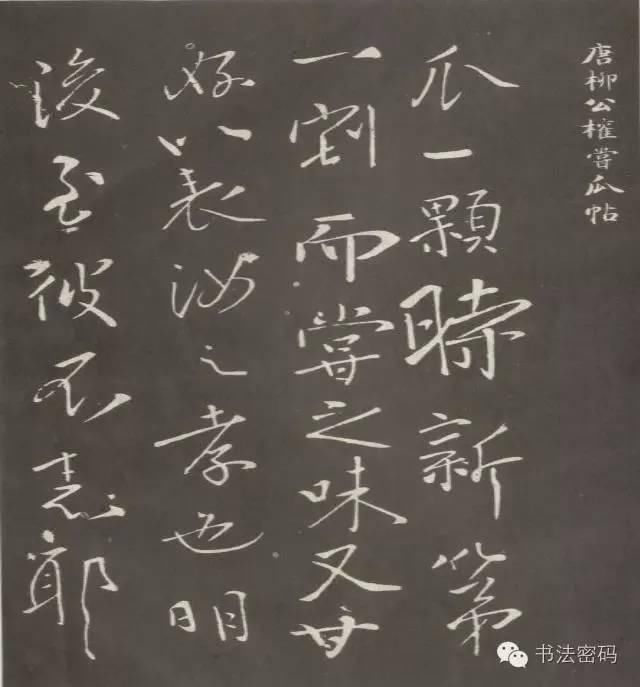 唐柳公權嘗瓜帖
瓜一顆時新第
一割而嘗之味又甘
好以表汝之孝也明
後至彼不志耶
书法密码